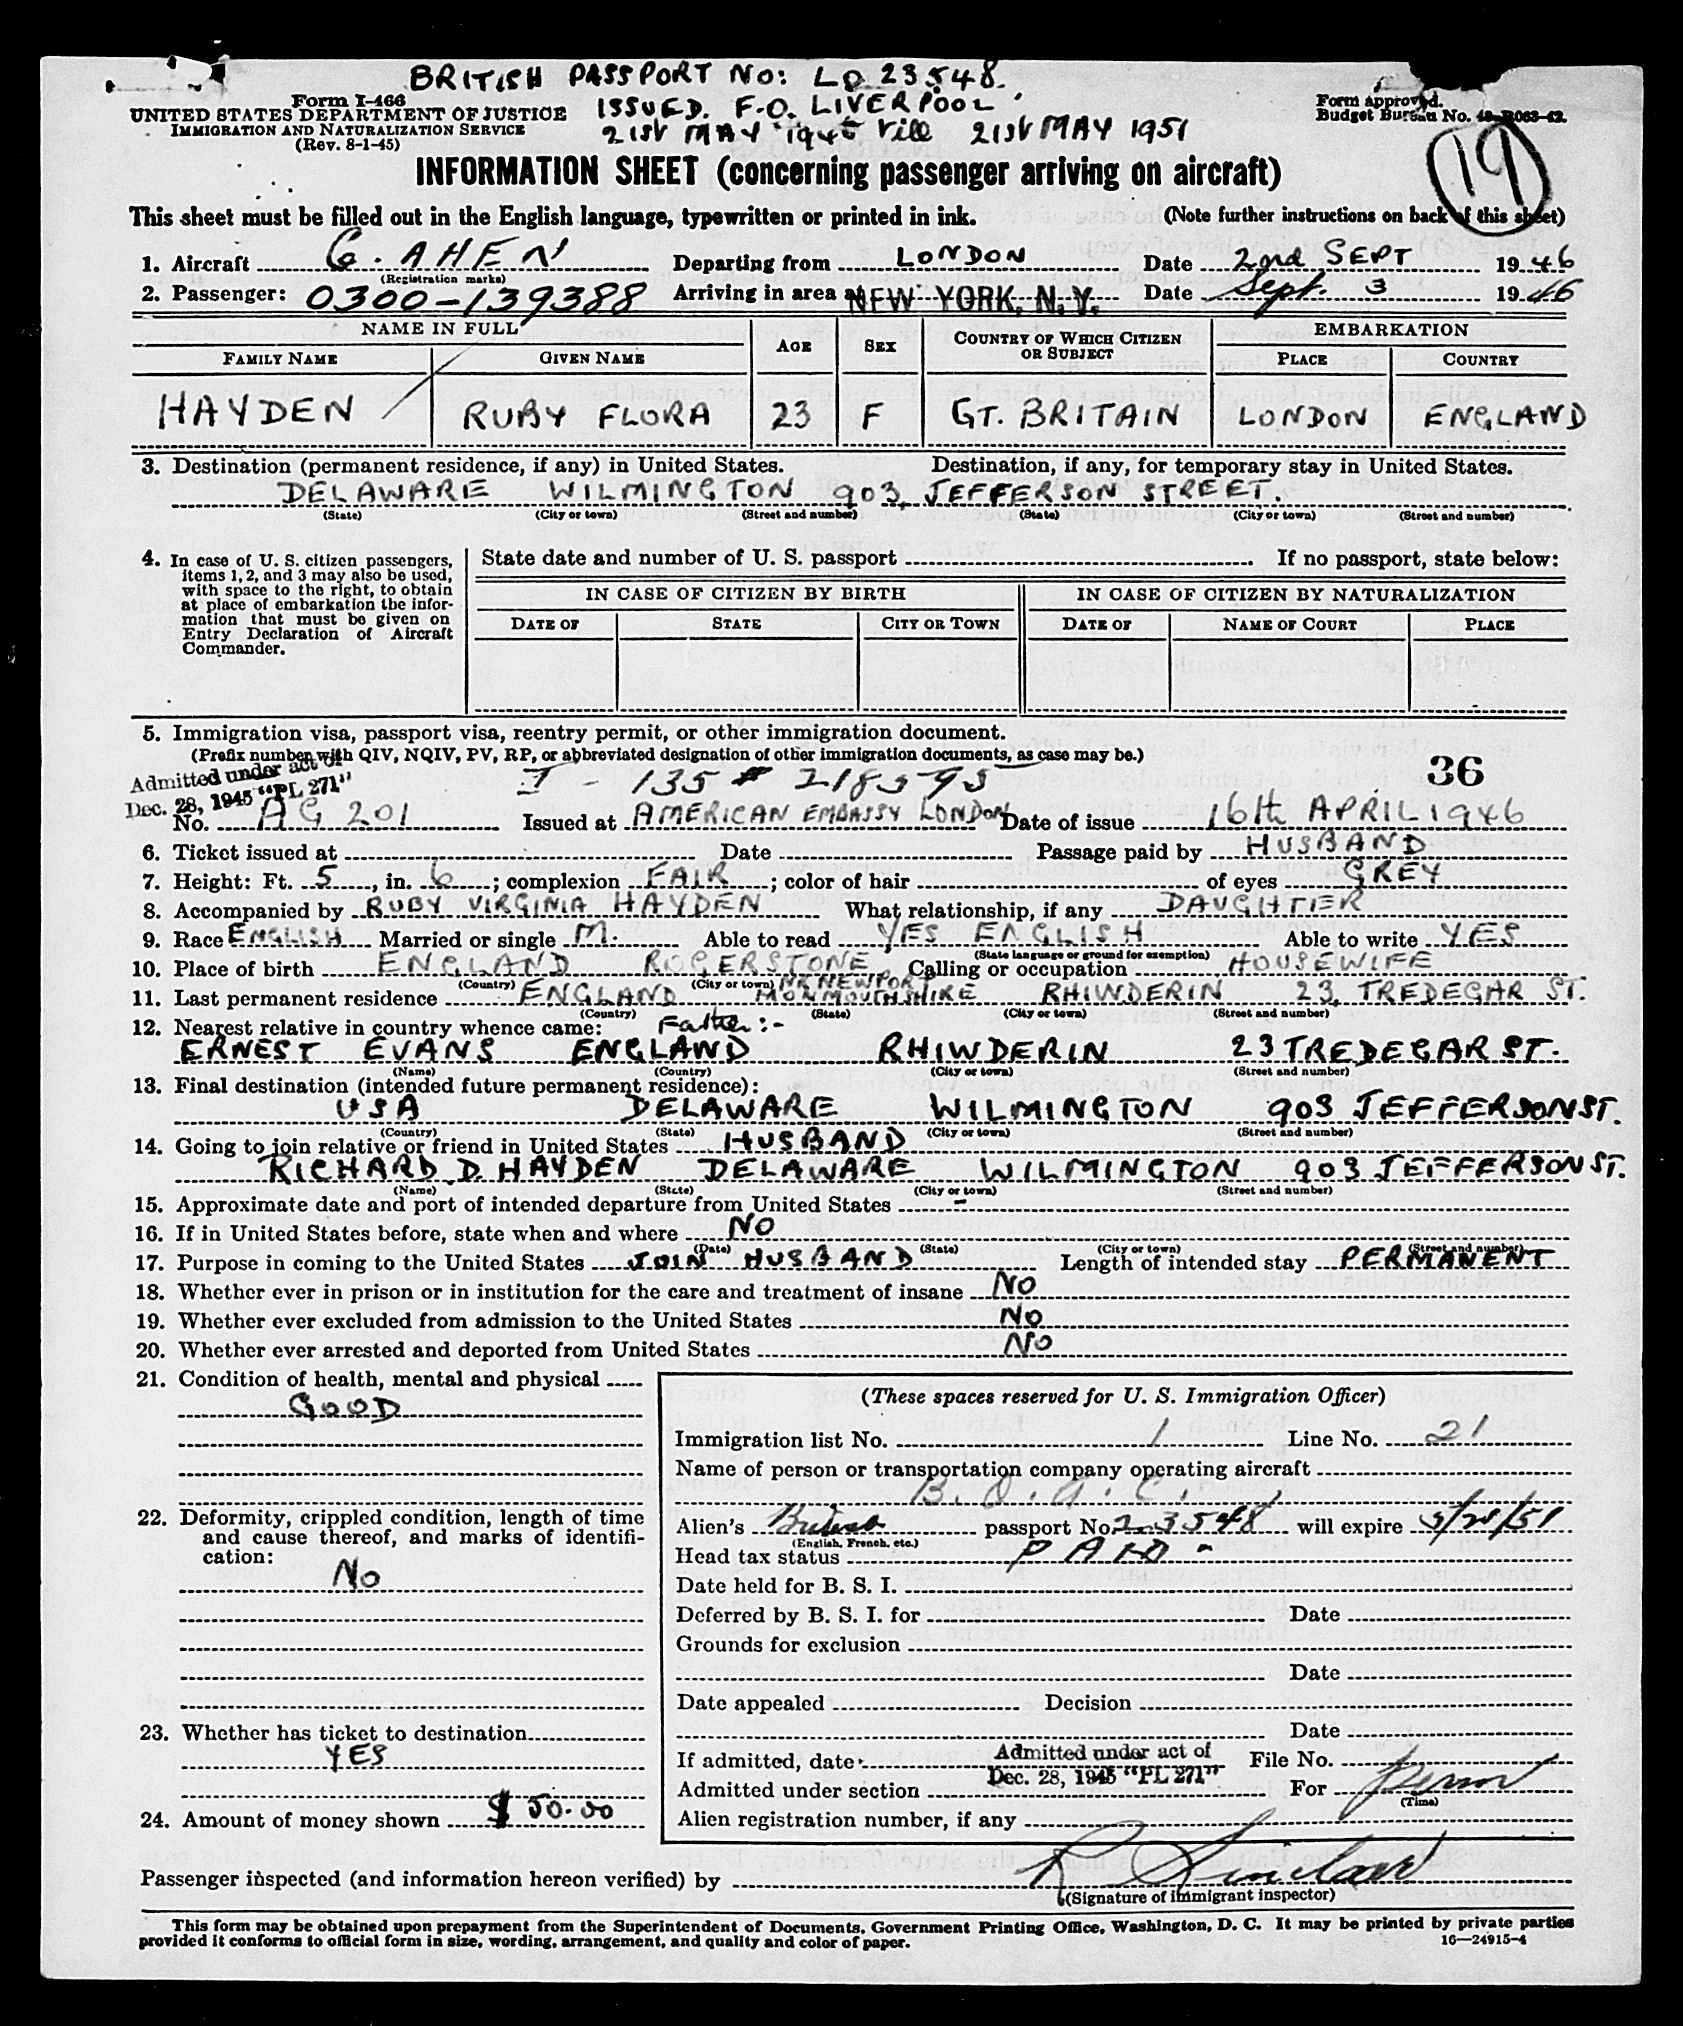 BRITISH PASSPORT NO: LD 23548.
Form I-466
UNITED STATES DEPARTMENT OF JUSTICE
IMMIGRATION AND NATURALIZATION SERVICE
(Rev. 8-1-45)
ISSUED. F.O. LIVERPOOL
21st MAY 1946 till 21st MAY 1951
Form approved.
Budget Bureau No.
19
INFORMATION SHEET (concerning passenger arriving on aircraft)
This sheet must be filled out in the English language, typewritten or printed in ink. (Note further instructions on back of this sheet)
1. Aircraft G. AHEN Departing from LONDON Date 2nd SEPT 1946
(Registration marks)
2. Passenger: 0300-139388 Arriving in area at NEW YORK, N.Y. Date Sept. 3 1946
NAME IN FULL AGE SEX COUNTRY OF WHICH CITIZEN OR SUBJECT EMBARKATION
FAMILY NAME GIVEN NAME PLACE COUNTRY
HAYDEN RUBY FLORA 23 F GT. BRITAIN LONDON ENGLAND
3. Destination (permanent residence, if any) in United States. Destination, if any, for temporary stay in United States.
DELAWARE WILMINGTON 903, JEFFERSON STREET.
(State) (City or town) (Street and number) (State) (City or town) (Street and number)
4. In case of U. S. citizen passengers,
items 1, 2, and 3 may also be used,
with space to the right, to obtain
at place of embarkation the infor-
mation that must be given on
Entry Declaration of Aircraft
Commander.
State date and number of U. S. passport If no passport, state below:
IN CASE OF CITIZEN BY BIRTH IN CASE OF CITIZEN BY NATURALIZATION
DATE OF STATE CITY OR TOWN DATE OF NAME OF COURT PLACE
5. Immigration visa, passport visa, reentry permit, or other immigration document.
(Prefix number with QIV, NQIV, PV, RP, or abbreviated designation of other immigration documents, as case may be.)
Admitted under act of
Dec. 28, 1945 "PL 271"
I - 135 # 218593
36
No. AG 201 Issued at AMERICAN EMBASSY LONDON Date of issue 16th APRIL 1946
6. Ticket issued at Date Passage paid by HUSBAND
7. Height: Ft. 5, in. 6; complexion FAIR; color of hair of eyes GREY
8. Accompanied by RUBY VIRGINIA HAYDEN What relationship, if any DAUGHTER
9. Race ENGLISH Married or single M. Able to read YES ENGLISH Able to write YES
(State language or ground for exemption)
10. Place of birth ENGLAND ROGERSTONE Calling or occupation HOUSEWIFE
(Country) (City or town) NR NEWPORT
11. Last permanent residence ENGLAND MONMOUTHSHIRE RHIWDERIN 23, TREDEGAR ST.
(Country) (State) (City or town) (Street and number)
12. Nearest relative in country whence came: Father:-
ERNEST EVANS ENGLAND RHIWDERIN 23 TREDEGAR ST.
(Name) (Country) (City or town) (Street and number)
13. Final destination (intended future permanent residence):
USA DELAWARE WILMINGTON 903 JEFFERSON ST.
(Country) (State) (City or town) (Street and number)
14. Going to join relative or friend in United States HUSBAND
RICHARD D. HAYDEN DELAWARE WILMINGTON 903 JEFFERSON ST.
(Name) (State) (City or town) (Street and number)
15. Approximate date and port of intended departure from United States -
16. If in United States before, state when and where NO
(Date) (State) (City or town) (Street and number)
17. Purpose in coming to the United States JOIN HUSBAND Length of intended stay PERMANENT
18. Whether ever in prison or in institution for the care and treatment of insane NO
19. Whether ever excluded from admission to the United States NO
20. Whether ever arrested and deported from United States NO
21. Condition of health, mental and physical
GOOD
22. Deformity, crippled condition, length of time
and cause thereof, and marks of identifi-
cation:
NO
23. Whether has ticket to destination
YES
24. Amount of money shown $ 50.00
(These spaces reserved for U. S. Immigration Officer)
Immigration list No. 1 Line No. 21
Name of person or transportation company operating aircraft
B.O.A.C.
Alien's British passport No. 23548 will expire
(English, French, etc.)
Head tax status PAID -
Date held for B. S. I.
Deferred by B. S. I. for Date
Grounds for exclusion
Date
Date appealed Decision
Date
If admitted, date Admitted under act of File No.
Dec. 28, 1945 "PL 271"
Admitted under section For Perm
(Time)
Alien registration number, if any
Passenger inspected (and information hereon verified) by R Sinclair
(Signature of immigrant inspector)
This form may be obtained upon prepayment from the Superintendent of Documents, Government Printing Office, Washington, D. C. It may be printed by private parties
provided it conforms to official form in size, wording, arrangement, and quality and color of paper.
16—24915-4